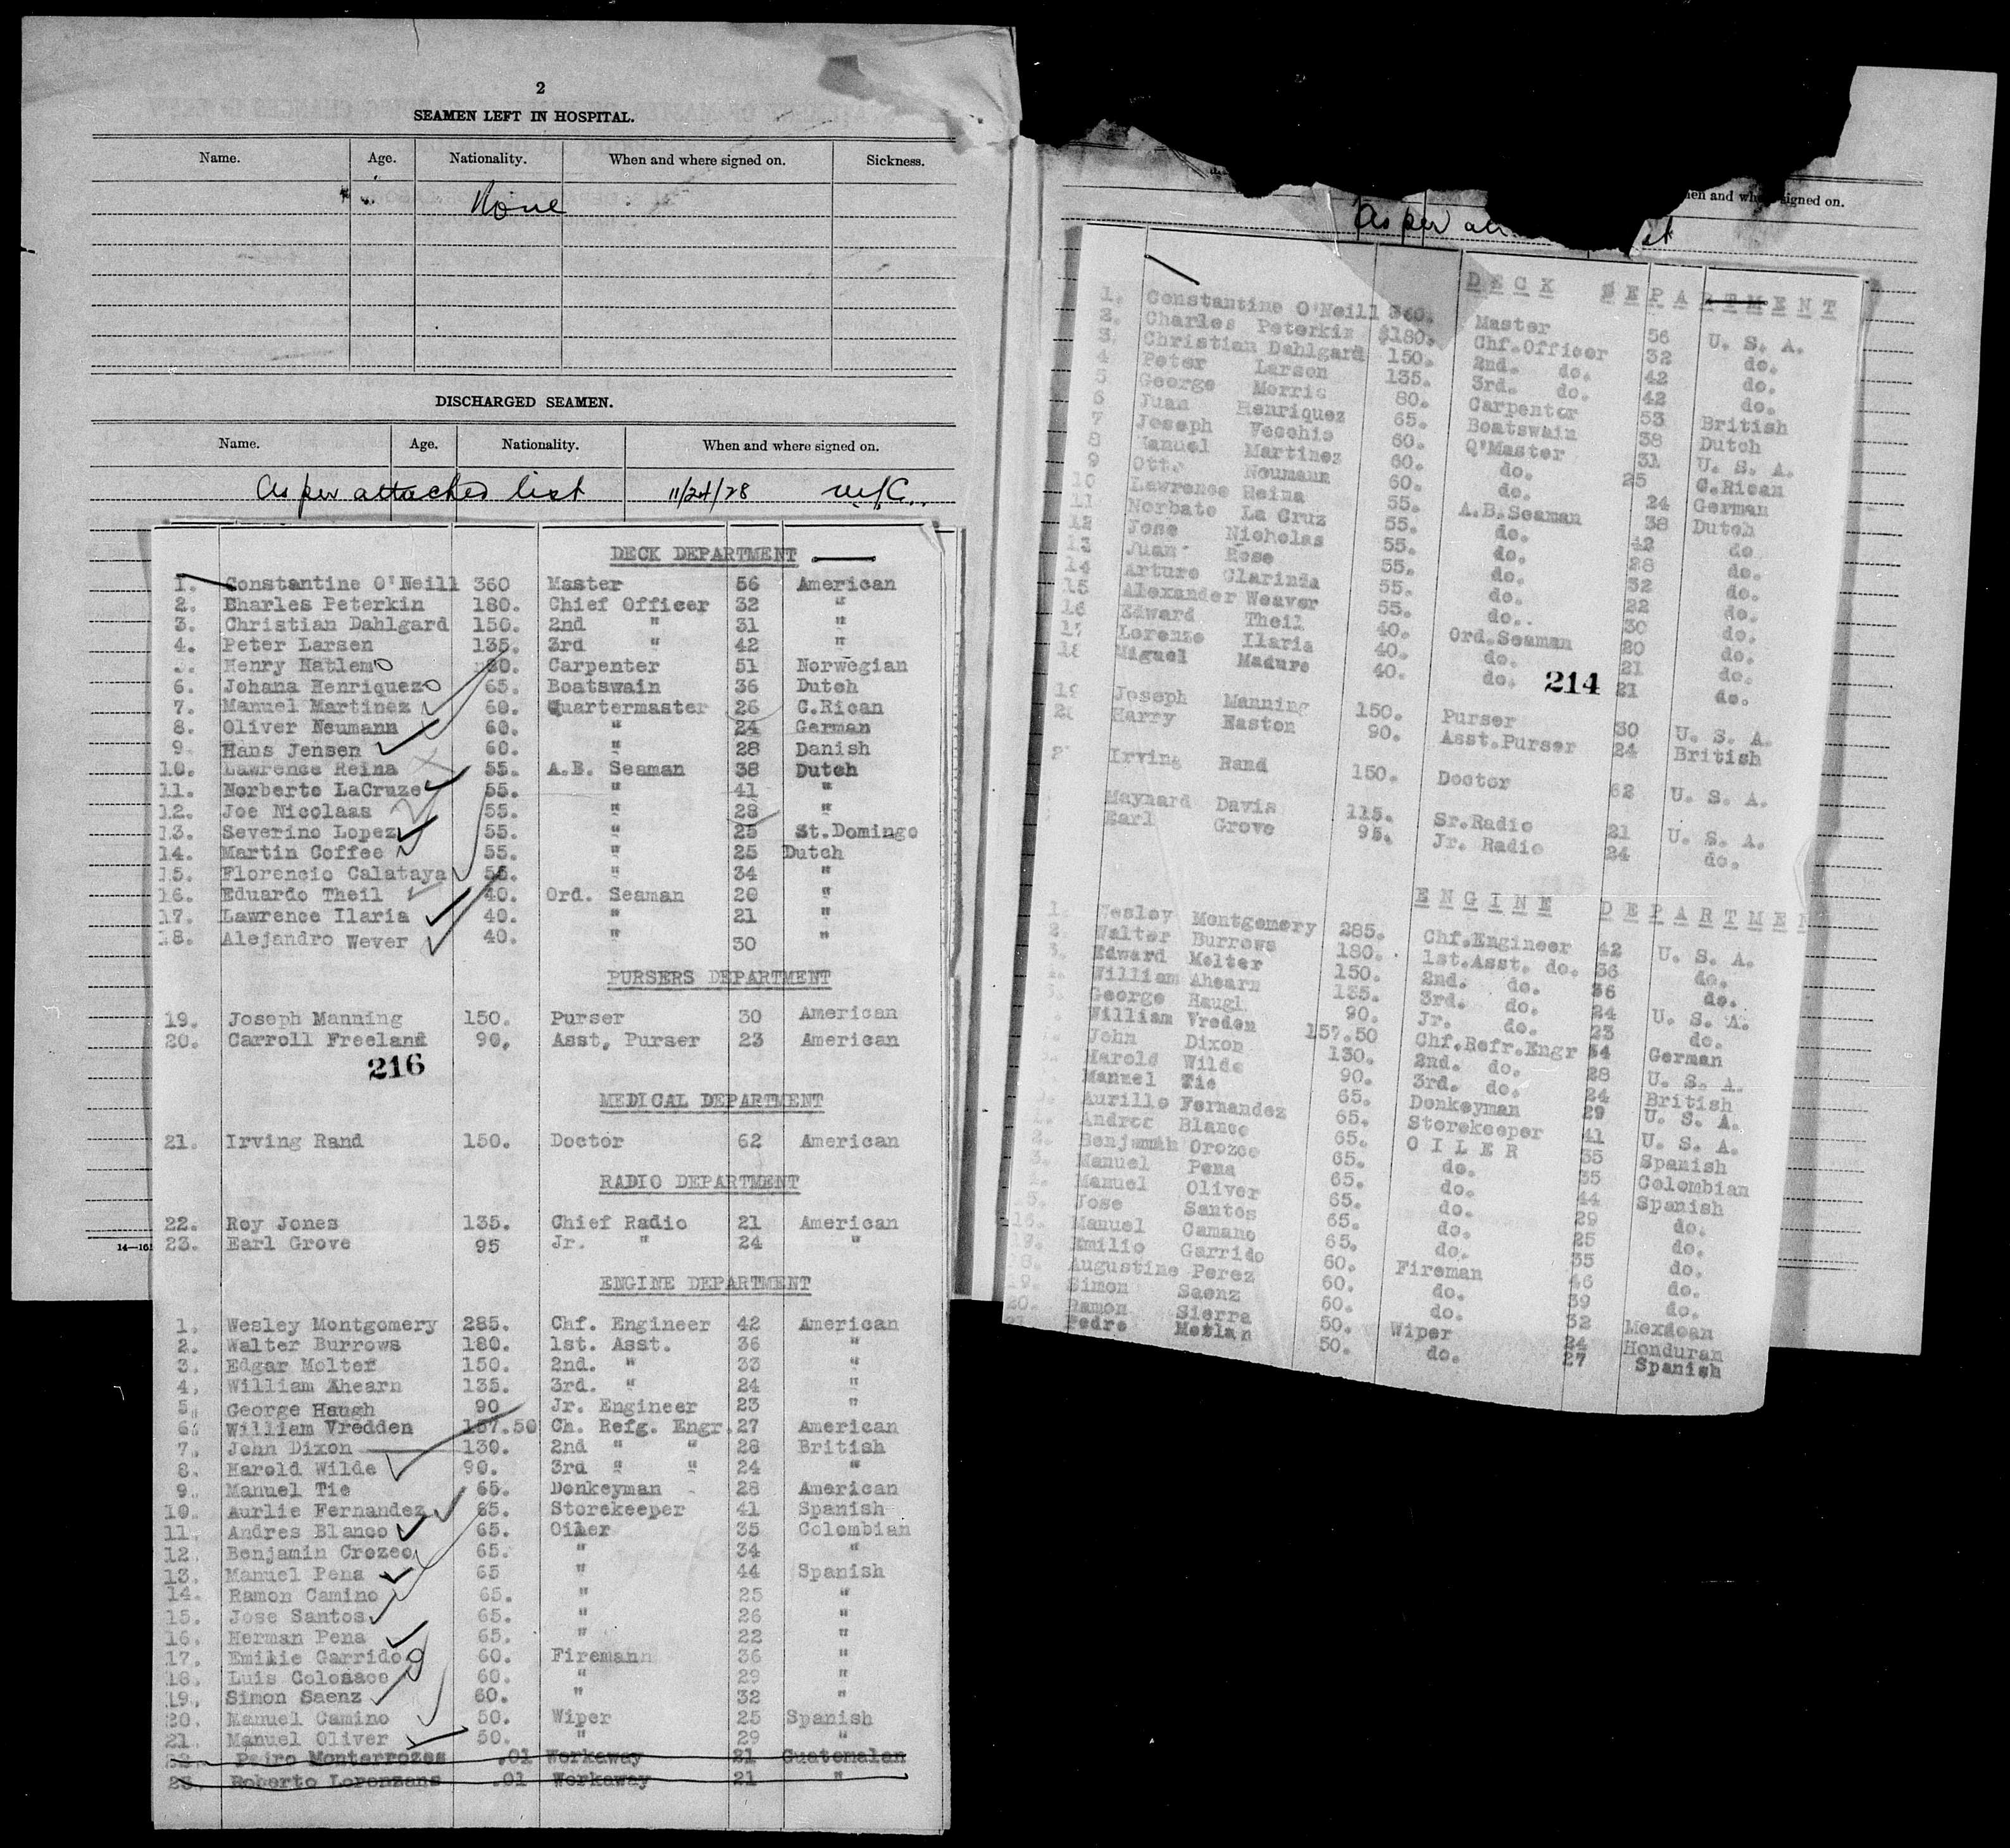 2
SEAMEN LEFT IN HOSPITAL.
Name. Age. Nationality. When and where signed on. Sickness.
None
DISCHARGED SEAMEN.
Name. Age. Nationality. When and where signed on.
As per attached list 11/24/28
DECK DEPARTMENT
1. Constantine O'Neill 360 Master 56 American
2. Charles Peterkin 180. Chief Officer 32 "
3. Christian Dahlgard 150. 2nd " 31 "
4. Peter Larsen 135. 3rd " 42 "
Henry Hatlem 80. Carpenter 51 Norwegian
6. Johana Henriquez 65. Boatswain 36 Dutch
7. Manuel Martinez 60. Quartermaster 26 C.Rican
8. Oliver Neumann 60. " 24 German
9. Hans Jensen 60. " 28 Danish
10. Lawrence Reina 55. A.B. Seaman 38 Dutch
11. Norberto LaCruze 55. " 41 "
12. Joe Nicolaas 55. " 28 "
13. Severino Lopez 55. " 25 St.Domingo
14. Martin Coffee 55. " 25 Dutch
15. Florencio Calataya 55. " 34 "
16. Eduardo Theil 40. Ord. Seaman 20 "
17. Lawrence Ilaria 40. " 21 "
18. Alejandro Wever 40. " 30 "
PURSERS DEPARTMENT
19. Joseph Manning 150. Purser 30 American
20. Carroll Freeland 90. Asst. Purser 23 American
216
MEDICAL DEPARTMENT
21. Irving Rand 150. Doctor 62 American
RADIO DEPARTMENT
22. Roy Jones 135. Chief Radio 21 American
23. Earl Grove 95 Jr. " 24 "
14—161
ENGINE DEPARTMENT
1. Wesley Montgomery 285. Chf. Engineer 42 American
2. Walter Burrows 180. 1st. Asst. 36 "
3. Edgar Molter 150. 2nd. " 33 "
4. William Ahearn 135. 3rd. " 24 "
5. George Haugh 90 Jr. Engineer 23 "
6. William Vredden 157.50 Ch. Refg. Engr. 27 American
7. John Dixon 130. 2nd " " 28 British
8. Harold Wilde 90. 3rd " " 24 "
9. Manuel Tie 65. Donkeyman 28 American
10. Aurlie Fernandez 65. Storekeeper 41 Spanish
11. Andres Blanco 65. Oiler 35 Colombian
12. Benjamin Crozco 65. " 34 "
13. Manuel Pena 65 " 44 Spanish
14. Ramon Camino 65. " 25 "
15. Jose Santos 65. " 26 "
16. Herman Pena 65. " 22 "
17. Emilie Garrido 60. Firemann 36 "
18. Luis Colosace 60. " 29 "
19. Simon Saenz 60. " 32 "
20. Manuel Camino 50. Wiper 25 Spanish
21. Manuel Oliver 50. " 29 "
22. Pedro Monterrozas .01 Workaway 21 Guatemalan
23. Roberto Lorenzans .01 Workaway 21 "
signed on.
As per
DECK DEPARTMENT
1. Constantine O'Neill 360. Master 56 U. S. A.
2. Charles Peterkin $180. Chf.Officer 32 do.
3. Christian Dahlgard 150. 2nd. do. 42 do.
4 Peter Larsen 135. 3rd. do. 42 do.
5 George Morris 80. Carpenter 53 British
6 Juan Henriquez 65. Boatswain 38 Dutch
7 Joseph Vecchio 60. Q'Master 31 U. S. A.
8 Manuel Martinez 60. do. 25 C.Rican
9 Otto Neumann 60. do. 24 German
10 Lawrence Reina 55. A.B.Seaman 38 Dutch
11 Norbato La Cruz 55. do. 42 do.
12 Jose Nicholas 55. do. 28 do.
13 Juan Rose 55. do. 32 do.
14 Arturo Clarinda 55. do. 22 do.
15 Alexander Weaver 55. do. 30 do.
16 Edward Theil 40. Ord.Seaman 20 do.
17 Lorenzo Ilaria 40. do. 21 do.
18 Miguel Maduro 40. do. 21 do.
214
19 Joseph Manning 150. Purser 30 U. S. A.
20 Harry Easton 90. Asst.Purser 24 British
2 Irving Rand 150. Doctor 62 U. S. A.
Maynard Davis 115. Sr.Radio 21 U. S. A.
Earl Grove 95. Jr. Radio 24 do.
ENGINE DEPARTMEN
1. Wesley Montgomery 285. Chf.Engineer 42 U. S. A.
2. Walter Burrows 180. 1st.Asst. do. 36 do.
3. Edward Molter 150. 2nd. do. 36 do.
4. William Ahearn 135. 3rd. do. 24 U. S. A.
5. George Haugh 90. Jr. do. 23 do.
William Vreden 157.50 Chf.Refr.Engr 54 German
John Dixon 130. 2nd. do. 28 U. S. A.
Harold Wilde 90. 3rd. do. 24 British
Manuel Tie 65. Donkeyman 29 U. S. A.
Aurillo Fernandez 65. Storekeeper 41 U. S. A.
Andres Blanco 65. OILER 35 Spanish
2. Benjamin Orozco 65. do. 35 Colombian
3. Manuel Pena 65. do. 44 Spanish
Manuel Oliver 65. do. 29 do.
15. Jose Santos 65. do. 25 do.
16. Manuel Camano 65. do. 35 do.
Emilio Garrido 60. Fireman 46 do.
18. Augustine Perez 60. do. 39 do.
19. Simon Saenz 60. do. 32 Mexican
20. Ramon Sierra 50. Wiper 24 Honduran
Pedro 50. do. 27 Spanish